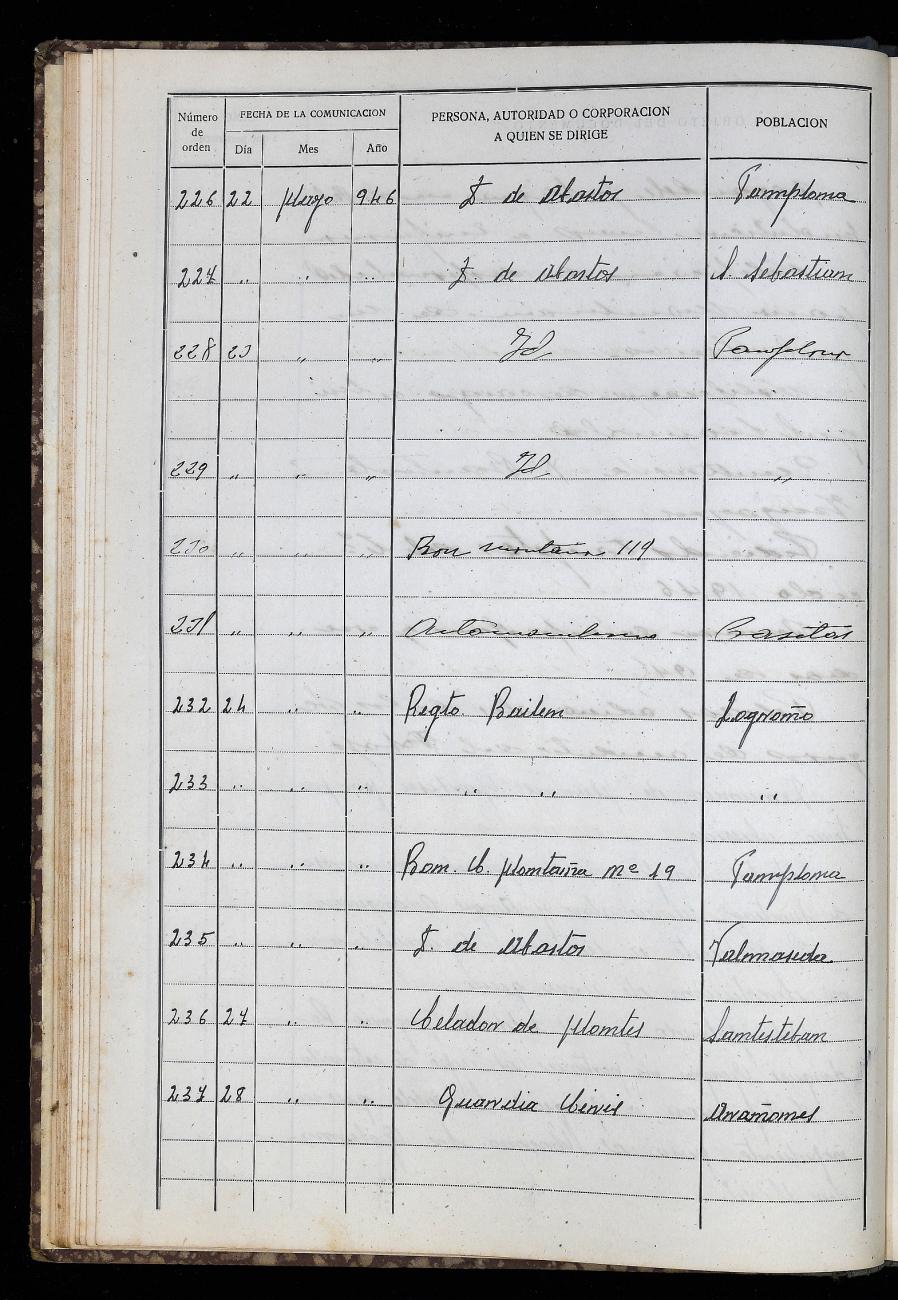 Número de orden FECHA DE LA COMUNICACION PERSONA, AUTORIDAD O CORPORACION A QUIEN SE DIRIGE POBLACION
Día Mes Año
226 22 Mayo 946 F. de Abastos Pamplona
227 " " " F. de Abastos S. Sebastian
228 23 " " Id Pamplona
229 " " " Id "
230 " " " Bon montaña 119
231 " " " Automovilismo
232 24 " " Regto Bailen Logroño
233 " " " " " "
234 " " " Bon. C. Montaña nº 19 Pamplona
235 " " " F. de Abastos Valmaseda
236 27 " " Celador de Montes Santesteban
237 28 " " Guardia Civil Arañones